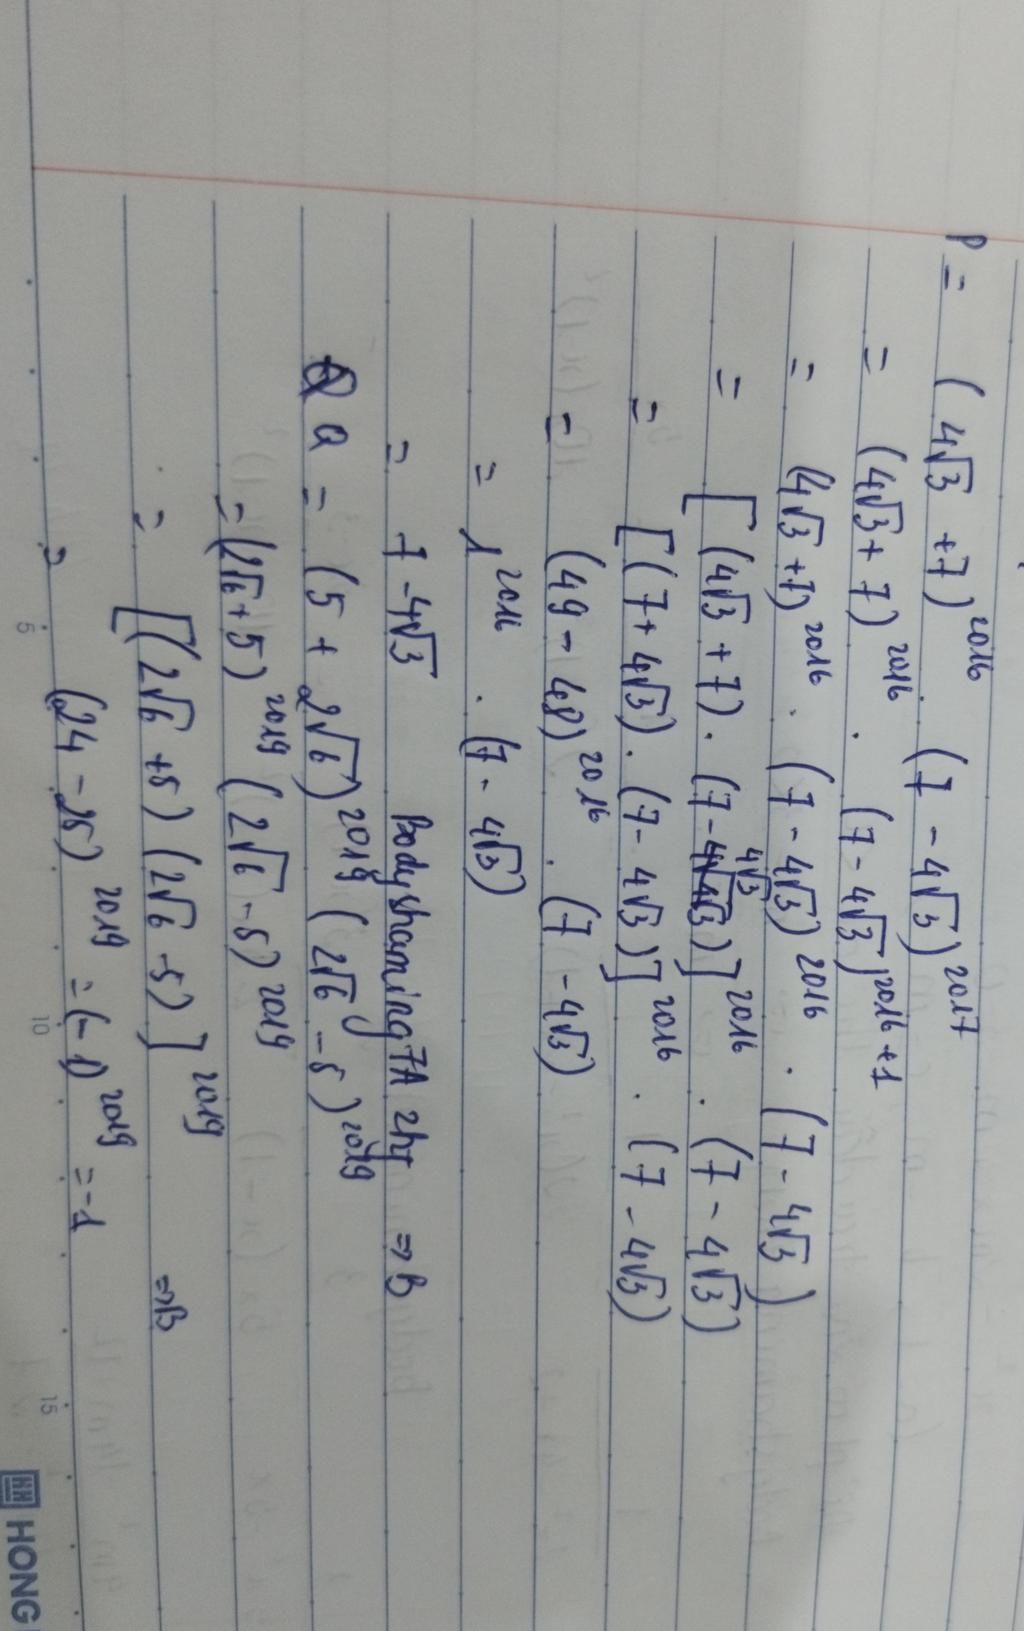 P = (4√3 + 7)^2016 . (7 - 4√3)^2017
= (4√3 + 7)^2016 . (7 - 4√3)^2016+1
= (4√3 + 7)^2016 . (7 - 4√3)^2016 . (7 - 4√3)
= [(4√3 + 7) . (7 - 4√3)]^2016 . (7 - 4√3)
= [(7 + 4√3) . (7 - 4√3)]^2016 . (7 - 4√3)
= (49 - 48)^2016 . (7 - 4√3)
= 1^2016 . (7 - 4√3)
= 7 - 4√3 Bodyshaming 7A 2hr => B
Q = (5 + 2√6)^2019 (2√6 - 5)^2019
= (2√6 + 5)^2019 (2√6 - 5)^2019
= [(2√6 + 5) (2√6 - 5)]^2019 => B
(24 - 25)^2019 = (-1)^2019 = -1
5 10 15
HONG